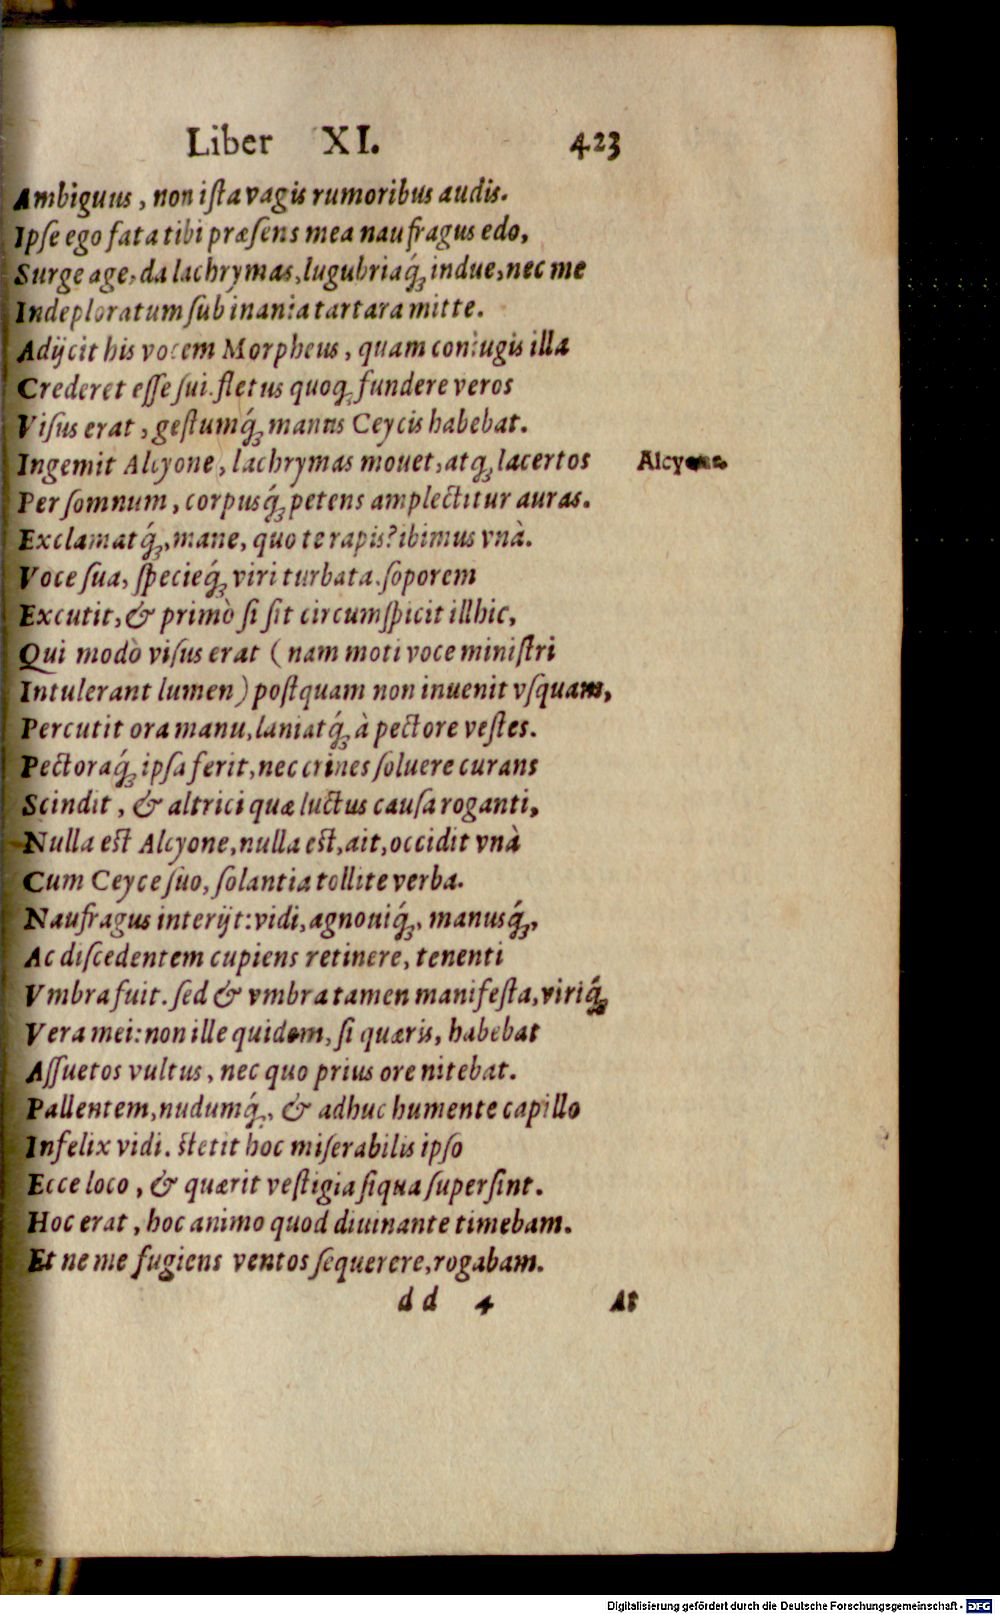 Liber XI. 423
Ambiguus, non ista vagis rumoribus audis.
Ipse ego fata tibi præsens mea naufragus edo,
Surge age, da lachrymas, lugubriaq́; indue, nec me
Indeploratum sub inania tartara mitte.
Adijcit his vocem Morpheus, quam coniugis illa
Crederet esse sui. fletus quoq; fundere veros
Visus erat, gestumq́; manus Ceycis habebat.
Ingemit Alcyone, lachrymas mouet, atq; lacertos Alcyone.
Per somnum, corpusq́; petens amplectitur auras.
Exclamatq́;, mane, quo te rapis? ibimus vnà.
Voce sua, specieq́; viri turbata. soporem
Excutit, & primò si sit circumspicit illhic,
Qui modò visus erat (nam moti voce ministri
Intulerant lumen) postquam non inuenit vsquam,
Percutit ora manu, laniatq́; à pectore vestes.
Pectoraq́; ipsa ferit, nec crines soluere curans
Scindit, & altrici quæ luctus causa roganti,
Nulla est Alcyone, nulla est, ait, occidit vnà
Cum Ceyce suo, solantia tollite verba.
Naufragus interijt: vidi, agnouiq́;, manusq́;,
Ac discedentem cupiens retinere, tenenti
Vmbra fuit. sed & vmbra tamen manifesta, viriq́;
Vera mei: non ille quidem, si quæris, habebat
Assuetos vultus, nec quo prius ore nitebat.
Pallentem, nudumq́;, & adhuc humente capillo
Infelix vidi. stetit hoc miserabilis ipso
Ecce loco, & quærit vestigia siqua supersint.
Hoc erat, hoc animo quod diuinante timebam.
Et ne me fugiens ventos sequerere, rogabam.
dd 4 At
Digitalisierung gefördert durch die Deutsche Forschungsgemeinschaft - DFG